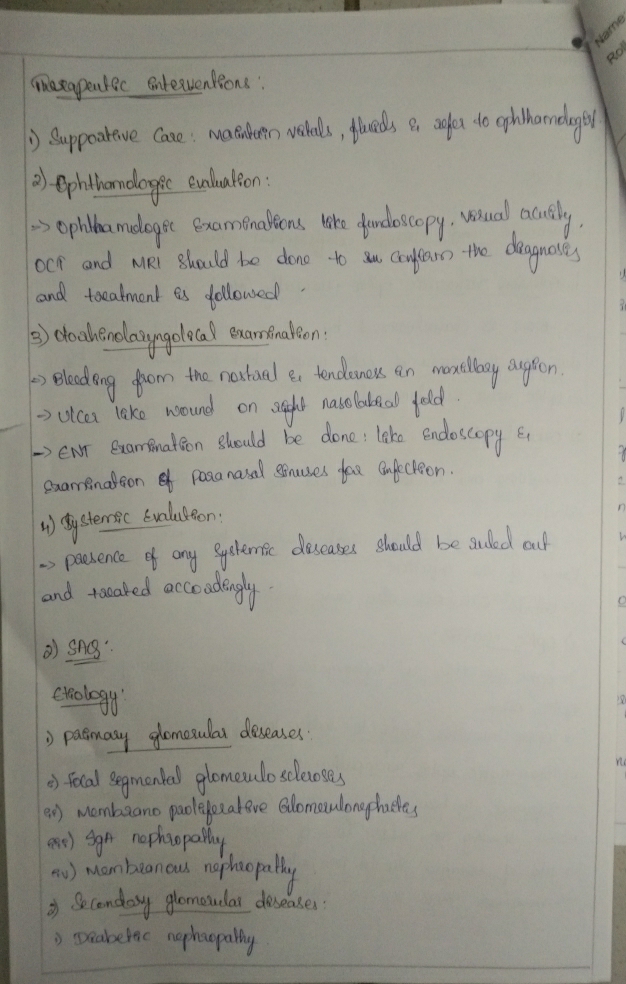 Therapeutic interventions:
1) Supportive Care: Maintain vitals, fluids & refer to ophthamologist
2) Ophthamologic evaluation:
-> Ophthamologic Examinations like fundoscopy, visual acuity,
OCT and MRI should be done to confirm the diagnosis
and treatment is followed.
3) Otorhinolaryngolical examination:
-> Bleeding from the nostral & tenderness in maxillary region.
-> Ulcer like wound on right nasolabial fold.
-> ENT Examination should be done: like Endoscopy &
Examination of paranasal sinuses for infection.
4) Systemic Evalution:
-> presence of any systemic diseases should be ruled out
and treated accordingly.
2) SAQ:
Etiology:
1) primary glomerular diseases:
i) focal segmental glomerulosclerosis
ii) Membrano proliferative Glomerulonephritis
iii) IgA nephropathy
iv) Membranous nephropathy
2) Secondary glomerular diseases:
i) Diabetic nephropathy
Name
Roll